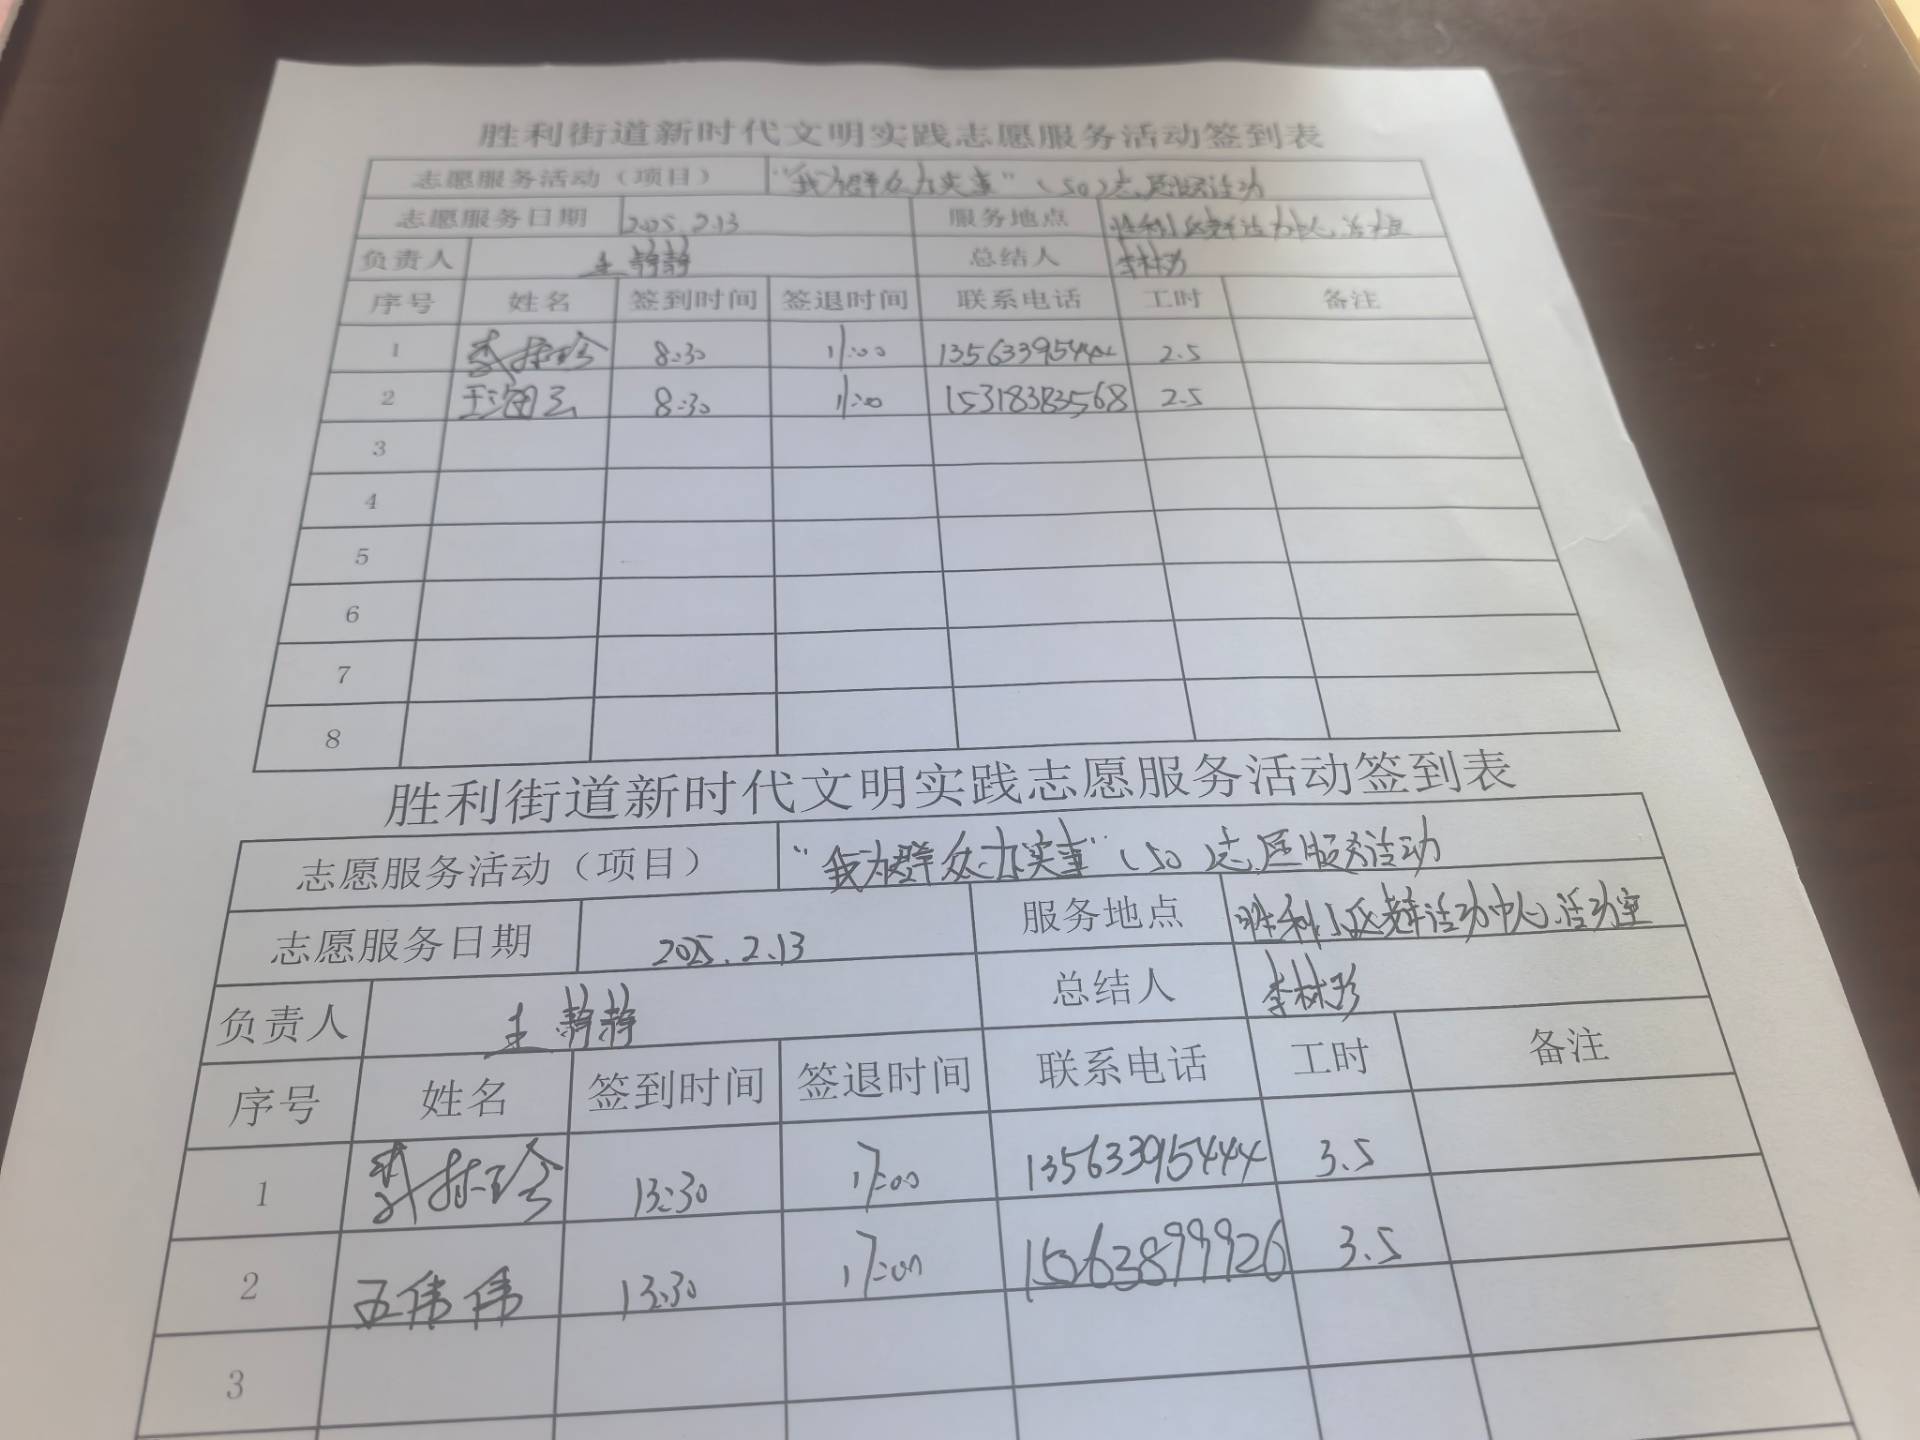 胜利街道新时代文明实践志愿服务活动签到表
志愿服务活动（项目） "我为群众办实事"（50）志愿服务活动
志愿服务日期 2025.2.13 服务地点 胜利小区党群活动中心活动室
负责人 王静静 总结人 李林珍
序号 姓名 签到时间 签退时间 联系电话 工时 备注
1 8:30 11:00 13563395444 2.5
2 王海云 8:30 11:00 15318383568 2.5
3
4
5
6
7
8
胜利街道新时代文明实践志愿服务活动签到表
志愿服务活动（项目） "我为群众办实事"（50）志愿服务活动
志愿服务日期 2025.2.13 服务地点 胜利小区党群活动中心活动室
负责人 王静静 总结人 李林珍
序号 姓名 签到时间 签退时间 联系电话 工时 备注
1 13:30 17:00 13563395444 3.5
2 王伟伟 13:30 17:00 15263899926 3.5
3